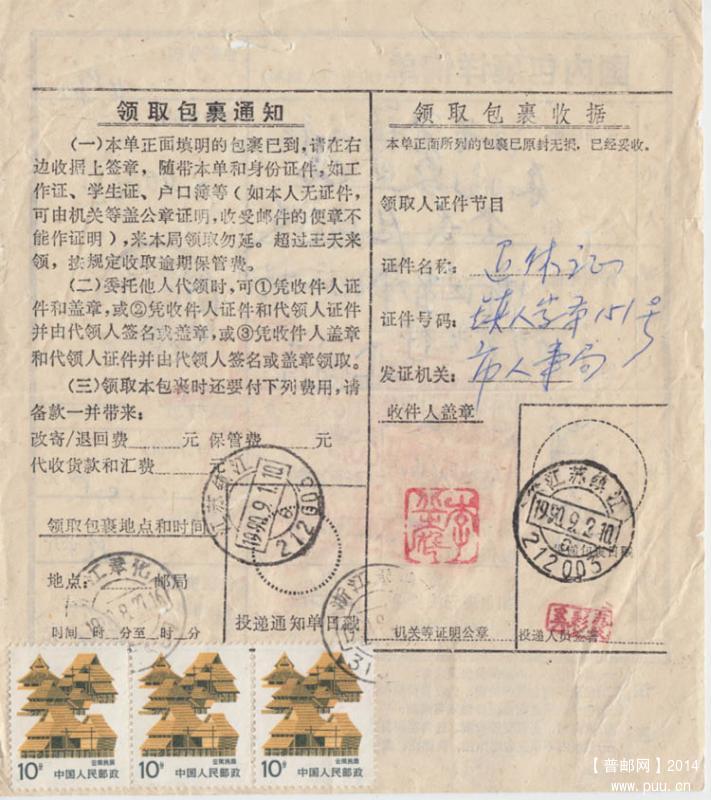 领取包裹通知
(一)本单正面填明的包裹已到,请在右
边收据上签章,随带本单和身份证件,如工
作证、学生证、户口簿等(如本人无证件,
可由机关等盖公章证明,收受邮件的便章不
能作证明),来本局领取勿延。超过三天来
领,按规定收取逾期保管费。
(二)委托他人代领时,可①凭收件人证
件和盖章,或②凭收件人证件和代领人证件
并由代领人签名或盖章,或③凭收件人盖章
和代领人证件并由代领人签名或盖章领取。
(三)领取本包裹时还要付下列费用,请
备款一并带来:
改寄/退回费 元 保管费 元
代收货款和汇费 元
领取包裹地点和时间
地点: 邮局
时间 时 分至 时 分
投递通知单日戳
江苏镇江
1990.9.1.10
212003
浙江奉化
浙江
31
领取包裹收据
本单正面所列的包裹已原封无损,已经妥收。
领取人证件节目
证件名称: 退休证
证件号码: 镇人 字第151号
发证机关: 市人事局
收件人盖章
江苏镇江
1990.9.2.10
212003
机关等证明公章
投递人员签署
10分
云南民居
中国人民邮政
10分
云南民居
中国人民邮政
10分
云南民居
中国人民邮政
【普邮网】2014
www.puu.cn